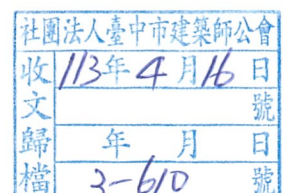 社團法人臺中市建築師公會
收文 113年4月16日
號
歸檔 年 月 日
3-610 號